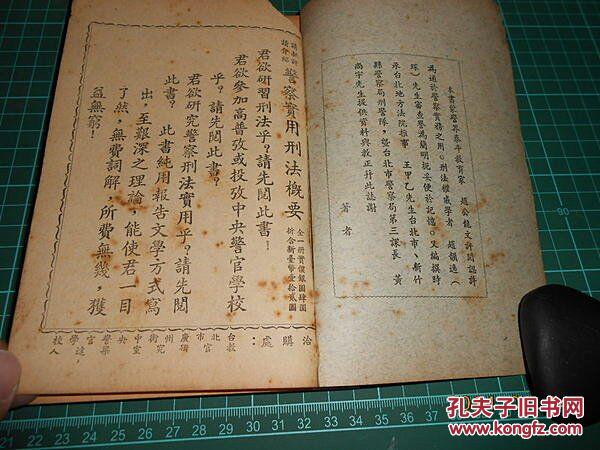 本書蒙警界泰斗教育家　趙公龍文許閱認許
爲適於警察實務之用。刑法權威學者　趙韻逸（
琛）先生審查譽爲簡明扼要便於記憶。又編撰時
承台北地方法院推事　王甲乙先生台北市、新竹
縣警察局刑警隊，暨台北市警察局第三課長　黃
尚宇先生提供資料與教正幷此誌謝
著者
請批評
請介紹
警察實用刑法概要
全一册實價銀圓肆圓
折合新臺幣壹拾貳圓
君欲研習刑法乎？請先閱此書！
君欲參加高普攷或投攷中央警官學校
乎？請先閱此書？
君欲研究警察刑法實用乎？請先閱
此書？
此書純用報告文學方式寫
出，至艱深之理論，能使君一目
了然，無費詞解，所費無幾，獲
益無窮！
洽購處：
台北市廣州街中央警官學校
孔夫子旧书网
www.kongfz.com